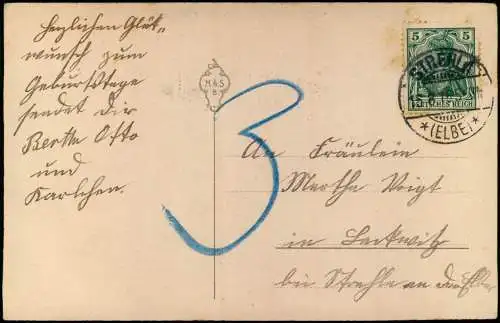 Herzlichen Glük-
wunsch zum
Geburtstage
sendet dir
Berta Otto
und
Karlchen.
M & S
B
5 5
DEUTSCHES REICH
STREHLA
*(ELBE)*
3
An Fräulein
Martha Voigt
in
bei Strehla an der Elbe